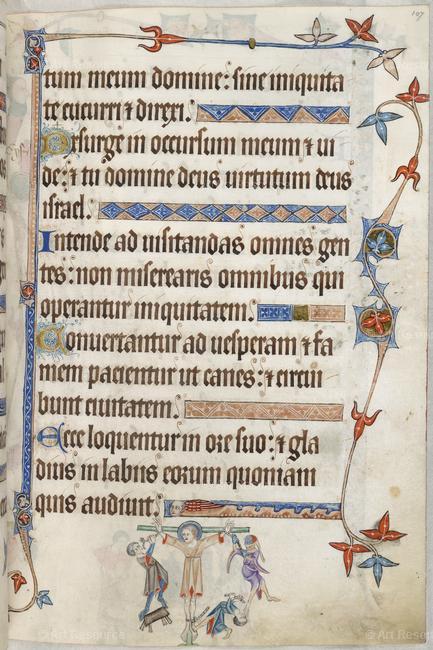 107
tum meum domine: sine iniquita
te cucurri ⁊ direxi.
Exsurge in occursum meum ⁊ ui
de: ⁊ tu domine deus uirtutum deus
israel.
Intende ad uisitandas omnes gen
tes: non miserearis omnibus qui
operantur iniquitatem.
Conuertantur ad uesperam ⁊ fa
mem pacientur ut canes: ⁊ circui
bunt ciuitatem.
Ecce loquentur in ore suo: ⁊ gla
dius in labiis eorum quoniam
quis audiuit.
© Art Resource
© Art Resource